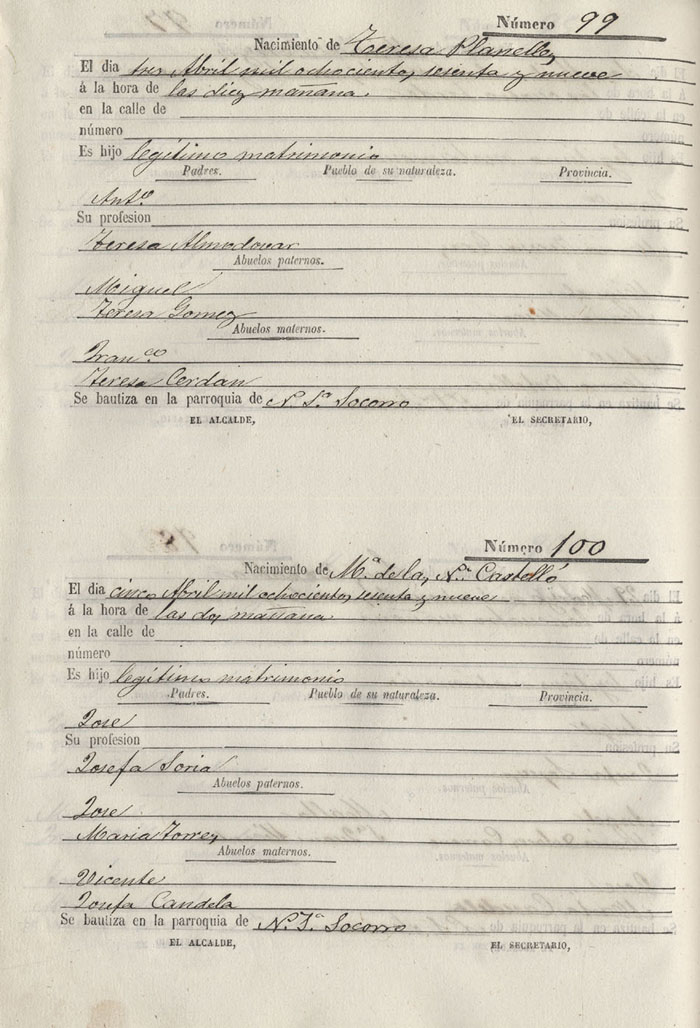 Número 99
Nacimiento de Teresa Planelles
El dia tres Abril mil ochocientos sesenta y nueve
á la hora de las diez mañana.
en la calle de
número
Es hijo legítimo matrimonio
Padres. Pueblo de su naturaleza. Provincia.
Antº
Su profesion
Teresa Almodovar
Abuelos paternos.
Miguel
Teresa Gomez
Abuelos maternos.
Franco
Teresa Cerdán
Se bautiza en la parroquia de N. Sª Socorro
EL ALCALDE, EL SECRETARIO,
Número 100
Nacimiento de Mª de las Castelló
El dia cinco Abril mil ochocientos sesenta y nueve
á la hora de las dos mañana
en la calle de
número
Es hijo legítimo matrimonio
Padres. Pueblo de su naturaleza. Provincia.
Jose
Su profesion
Josefa Soria
Abuelos paternos.
Jose
Maria Torres
Abuelos maternos.
Vicente
Josefa Candela
Se bautiza en la parroquia de N. Sª Socorro
EL ALCALDE, EL SECRETARIO,